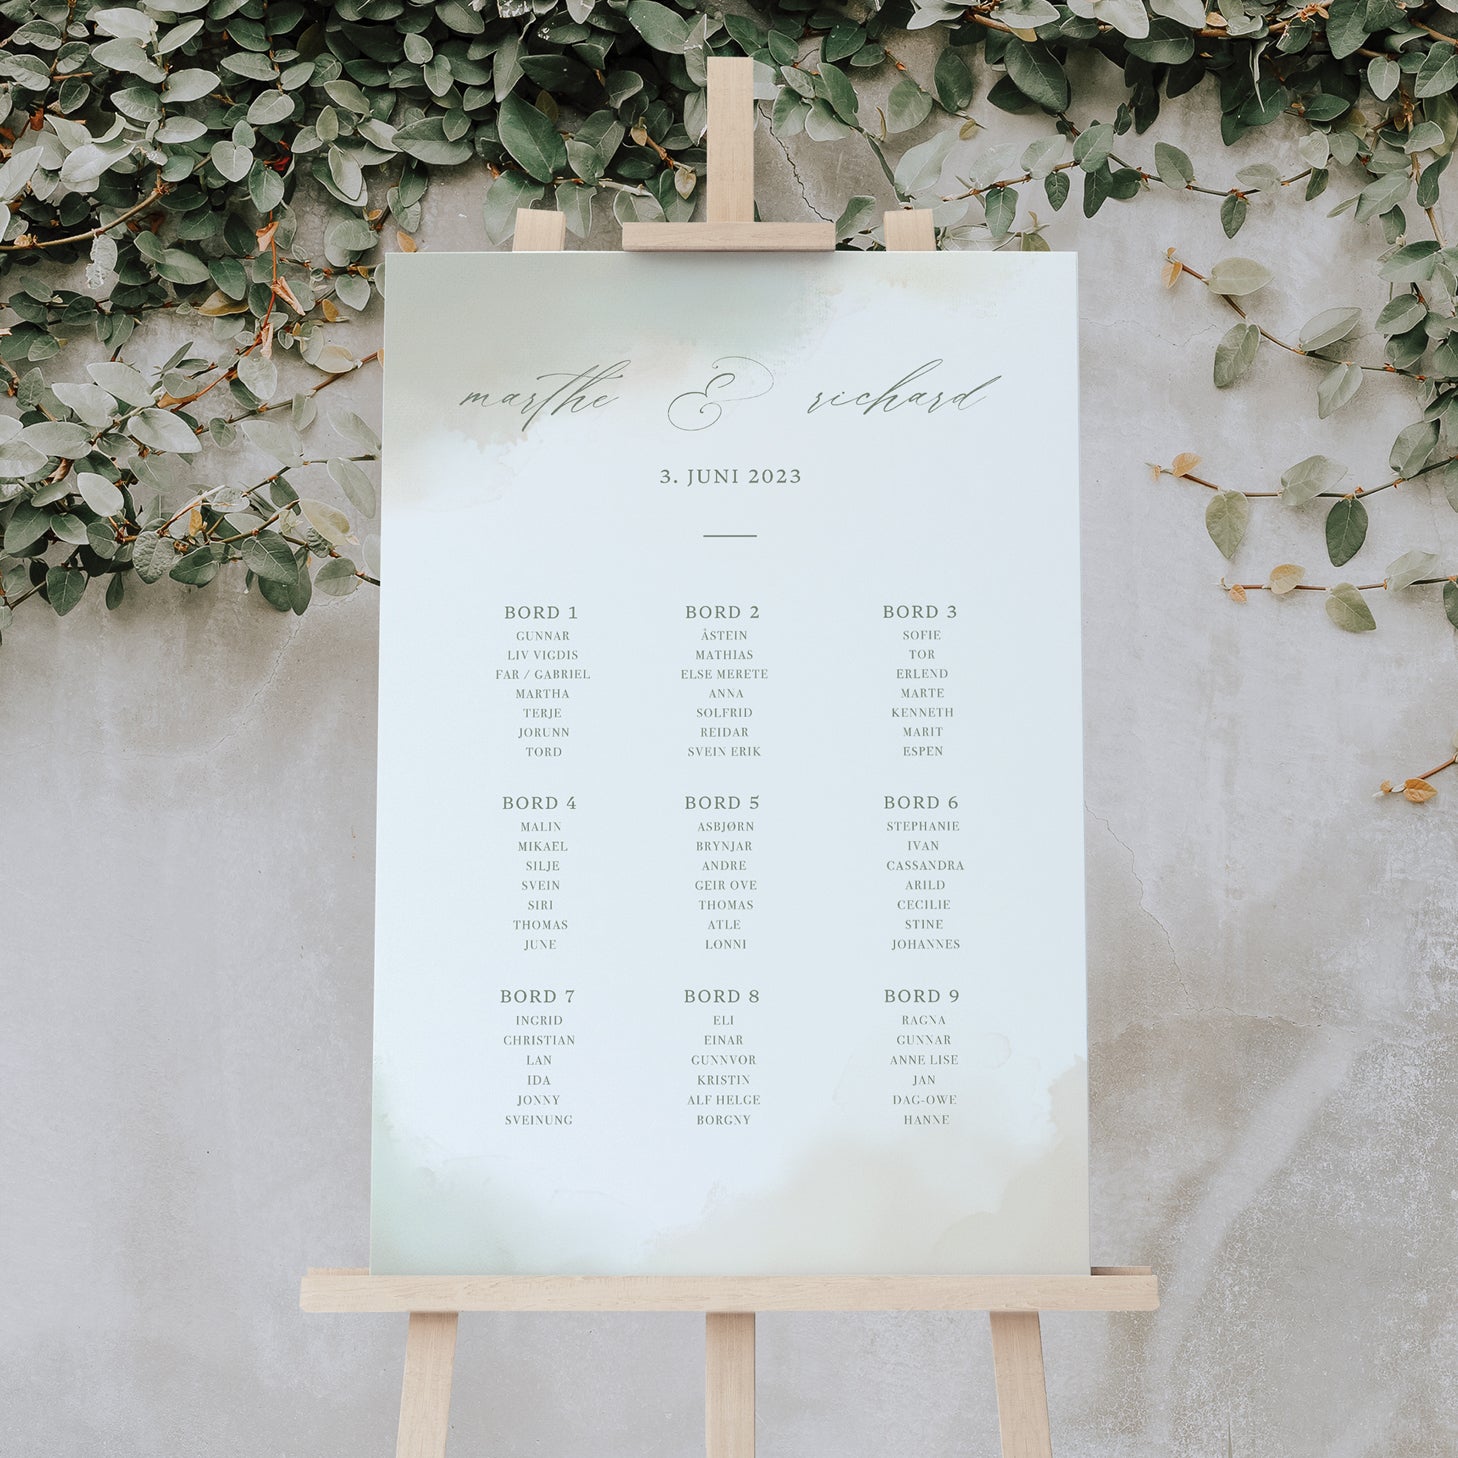 marthe & richard
3. JUNI 2023
BORD 1
GUNNAR
LIV VIGDIS
FAR / GABRIEL
MARTHA
TERJE
JORUNN
TORD
BORD 2
ÅSTEIN
MATHIAS
ELSE MERETE
ANNA
SOLFRID
REIDAR
SVEIN ERIK
BORD 3
SOFIE
TOR
ERLEND
MARTE
KENNETH
MARIT
ESPEN
BORD 4
MALIN
MIKAEL
SILJE
SVEIN
SIRI
THOMAS
JUNE
BORD 5
ASBJØRN
BRYNJAR
ANDRE
GEIR OVE
THOMAS
ATLE
LONNI
BORD 6
STEPHANIE
IVAN
CASSANDRA
ARILD
CECILIE
STINE
JOHANNES
BORD 7
INGRID
CHRISTIAN
LAN
IDA
JONNY
SVEINUNG
BORD 8
ELI
EINAR
GUNNVOR
KRISTIN
ALF HELGE
BORGNY
BORD 9
RAGNA
GUNNAR
ANNE LISE
JAN
DAG-OWE
HANNE